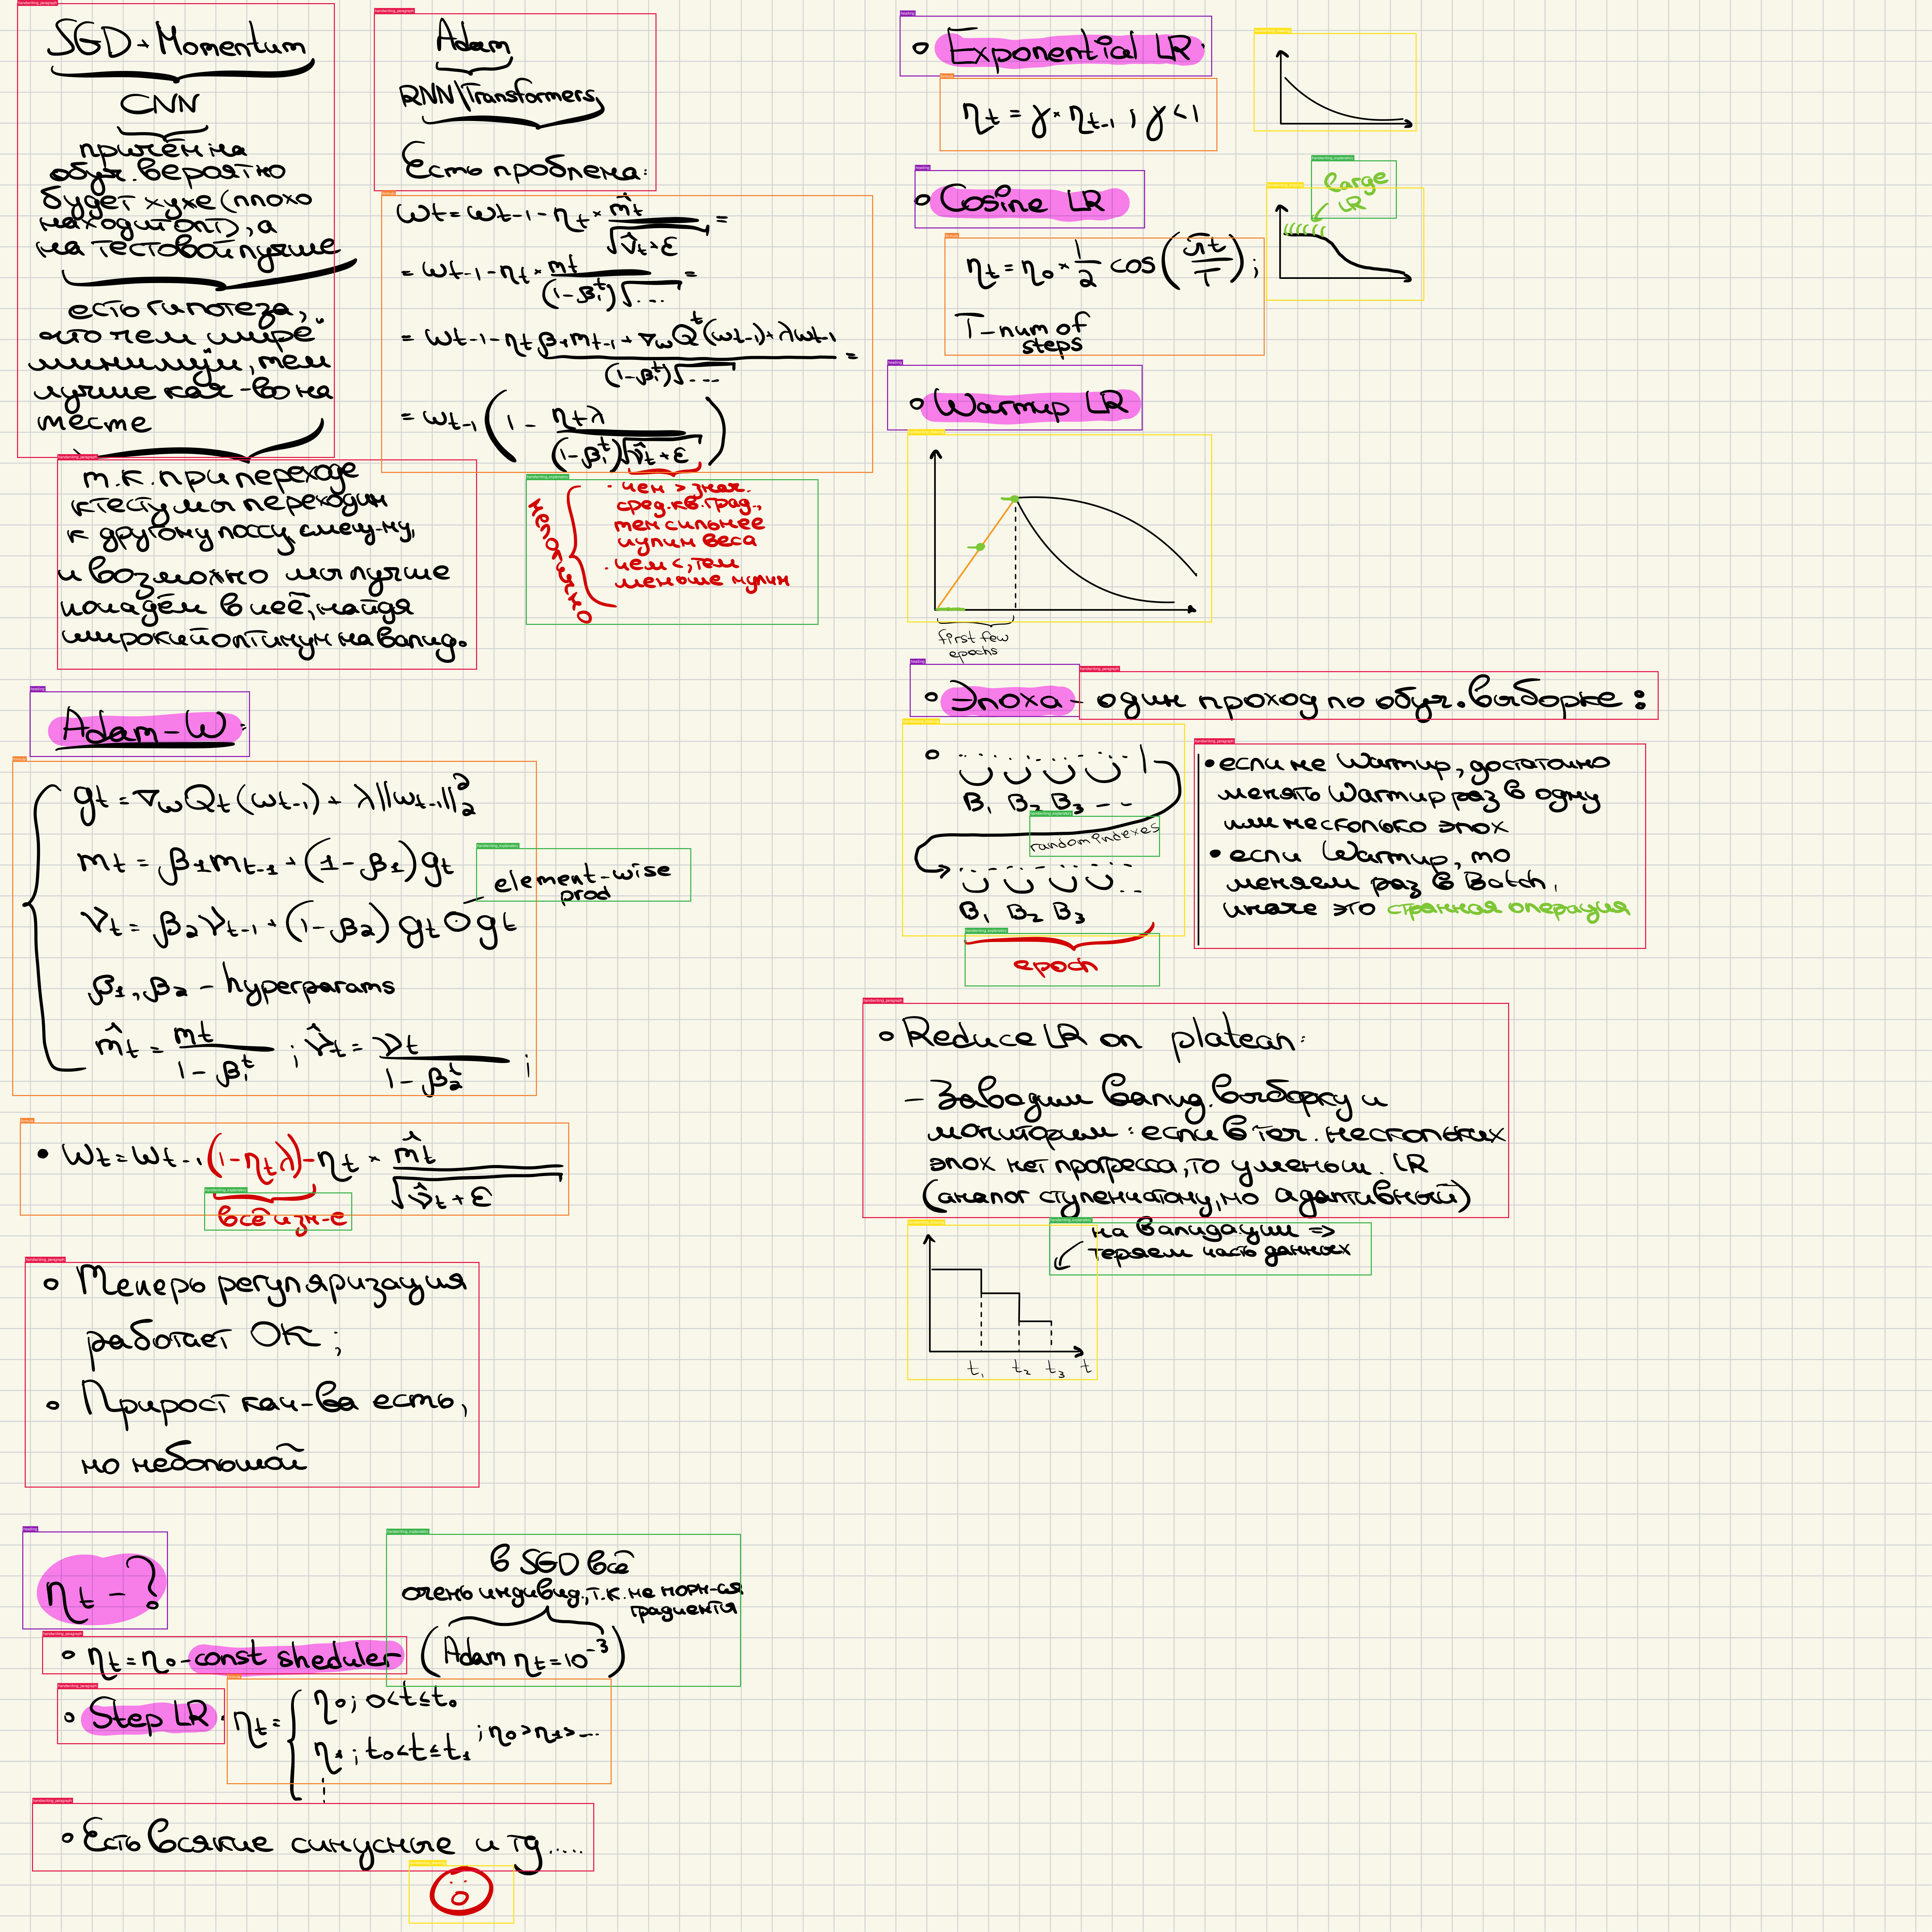 SGD + Momentum
CNN
причём на
обуч. вероятно
будет хуже (плохо
находит опт), а
на тестовой лучше
есть гипотеза,
что чем шире
минимум, тем
лучше кач-во на
тесте
т.к. при переходе
к тесту мы переходим
к другому лоссу, смещ-му,
и возможно мы лучше
попадём в неё, найдя
широкий оптимум на валид.
Adam
RNN/Transformers
Есть проблема:
ωt = ωt-1 - ηt × m̂t / √(v̂t + ε) =
= ωt-1 - ηt × mt / ((1-β₁ᵗ)√...) =
= ωt-1 - ηt (β₁mt-1 + ∇ω Qᵗ(ωt-1) + λωt-1) / ((1-β₁ᵗ)√...) =
= ωt-1 (1 - ηtλ / ((1-β₁ᵗ)√(v̂t + ε)))
нелогично
· чем > знач.
сред.кв.град.,
тем сильнее
нулим веса
· чем <, тем
меньше нулим
Adam-W:
gt = ∇ω Qt(ωt-1) + λ||ωt-1||₂²
mt = β₁mt-1 + (1-β₁)gt
element-wise
prod
νt = β₂νt-1 + (1-β₂) gt ⊙ gt
β₁, β₂ - hyperparams
m̂t = mt / (1-β₁ᵗ) ; ν̂t = νt / (1-β₂ᵗ) ;
• ωt = ωt-1 (1-ηtλ) - ηt × m̂t / √(ν̂t + ε)
всё изм-е
Теперь регуляризация
работает OK;
Прирост кач-ва есть,
но небольшой
ηt - ?
ηt = η0 - const sheduler
в SGD всё
очень индивид., т.к. не норм-ся
градиенты
(Adam ηt = 10⁻³)
Step LR:
ηt = { η0; 0<t≤t0
η1; t0<t≤t1 ; η0>η1>...
Есть всякие синусные и тд.....
Exponential LR:
ηt = γ × ηt-1 ; γ<1
Cosine LR
large
LR
ηt = η0 × 1/2 cos(πt/T);
T - num of
steps
Warmup LR
first few
epochs
Эпоха - один проход по обуч. выборке:
B₁ B₂ B₃ - -
random indexes
B₁ B₂ B₃
epoch
• если не Warmup, достаточно
менять Warmup раз в одну
или несколько эпох
• если Warmup, то
меняем раз в Batch,
иначе это странная операция
Reduce LR on platean:
- Заводим валид. выборку и
мониторим: если в теч. нескольких
эпох нет прогресса, то уменьш. LR
(аналог ступенчатому, но адаптивный)
на валидации =>
теряем часть данных
t₁ t₂ t₃ t